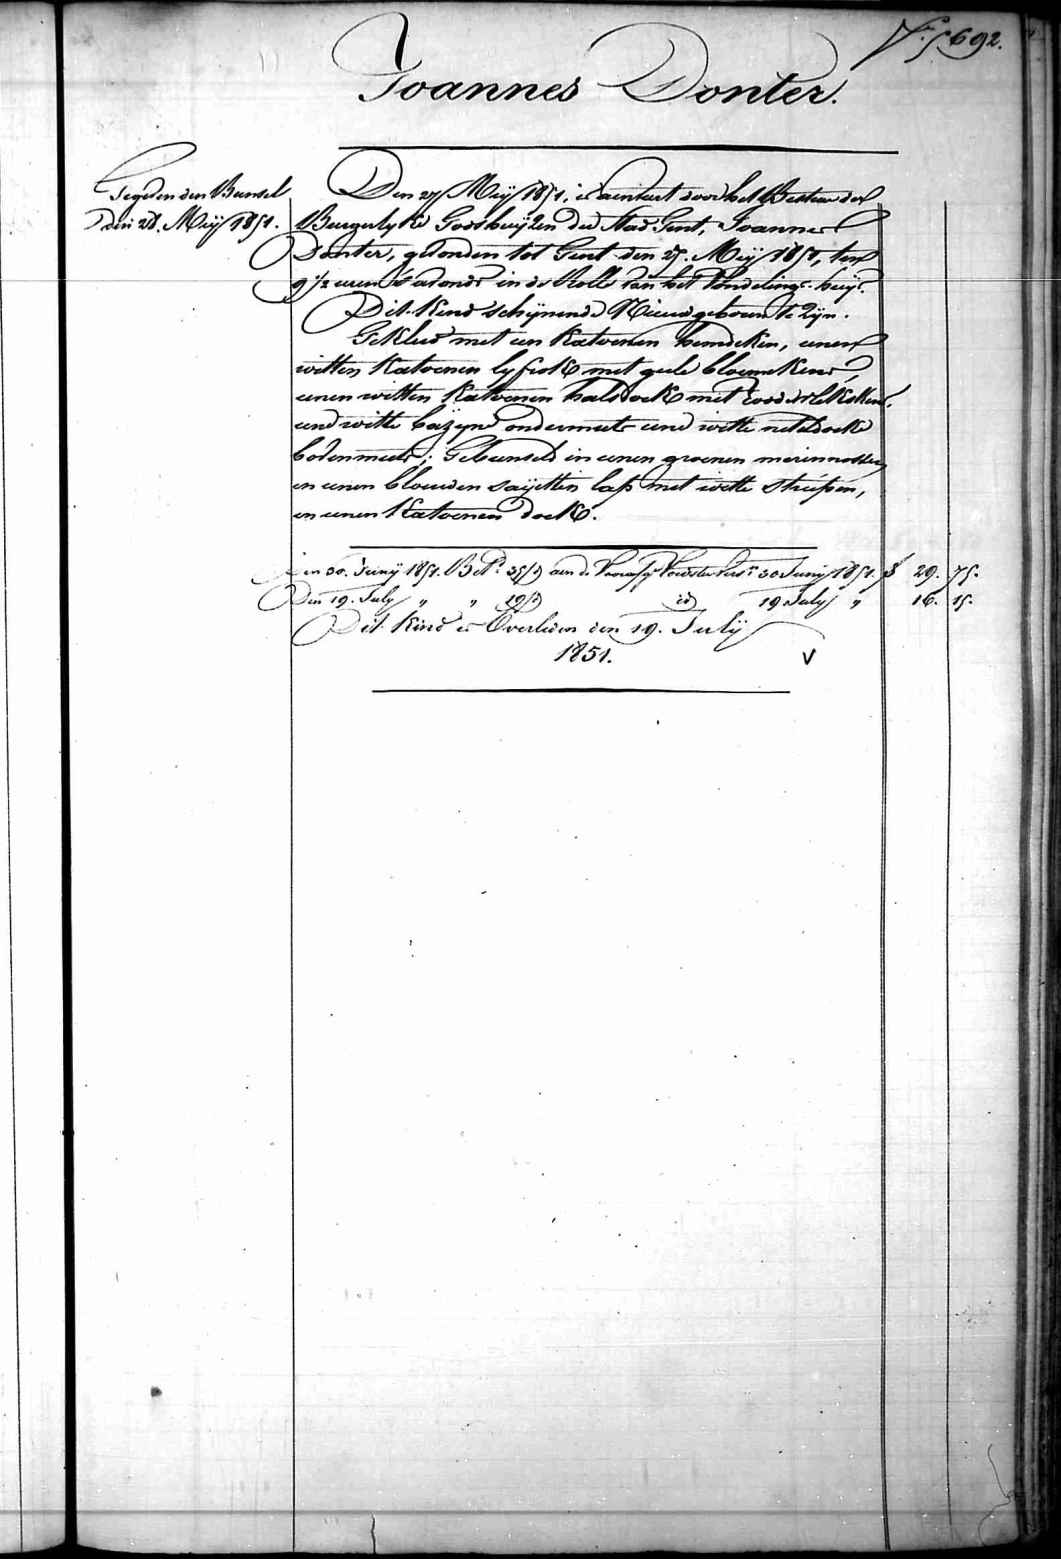 692.
Joannes Donter.
Den 27 Meij 1851, is aenveert door het Bestuer der
den 28. Meij 1851.
Burgerlyke Godshuijzen der Stad Gent, Joannes
Donter, gevonden tot Gent den 27. Meij 1851, ten
9 1/2 uren 's avonds in de Rolle van het Vondelings-huijs.
Dit Kind schijnende Nieuwgeboren te Zijn.
Gekleed met een Katoenen hemdeken, eenen
witten Katoenen lyfrok met geele bloemekens,
eenen witten Katoenen halsdoek met roode
eene witte bazijne ondermuts eene witte neteldoeke
bovenmuts; Gebunseld in eenen groenen merinossen
en eenen blauwen saijetten lap met witte striepen,
en eenen Katoenen doek.
Den 30. Junij 1851. 35/d aen de Voedster 30 Junij 1851. 29. 75.
Den 19. July " " 19/d id 19 July " 16. 15.
Dit Kind is Overleden den 19. Julij
1851. V